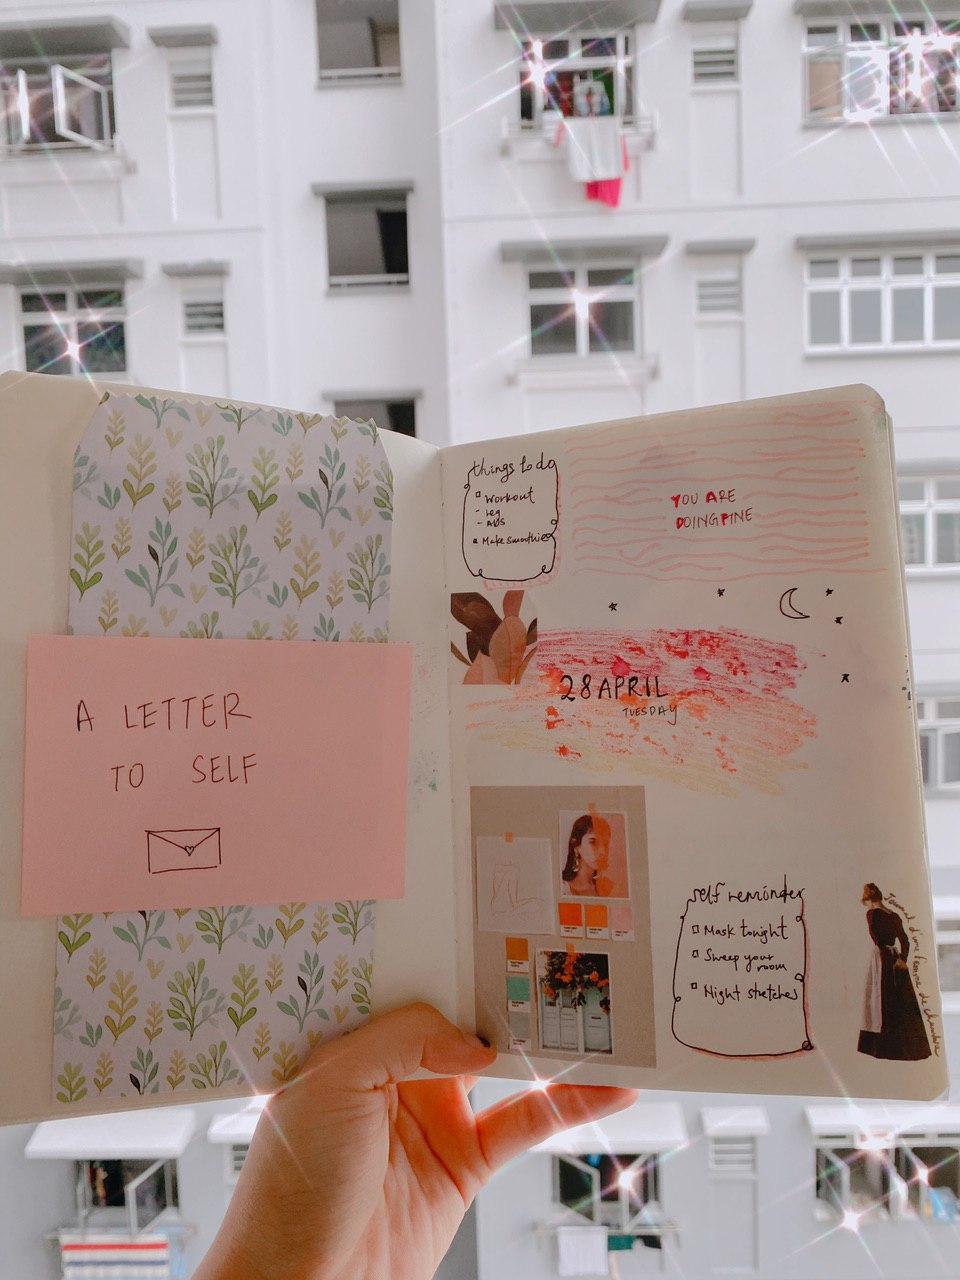 A LETTER
TO SELF
things to do
Workout
- Leg
- ABS
Make smoothie
YOU ARE
DOING FINE
28 APRIL
TUESDAY
self reminder
Mask tonight
Sweep your
room
Night stretches
Journal d'une femme de chambre